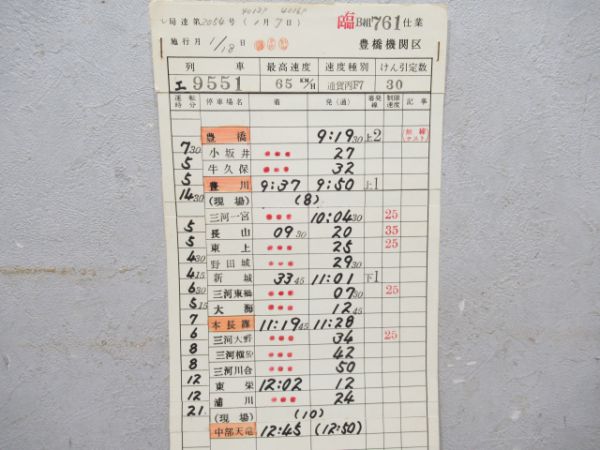 局達第2054号(1月7日)
臨B組761仕業
施行月1/18日
豊橋機関区
列車 最高速度 速度種別 けん引定数
エ9551 65KM/H 通貨丙F7 30
運転時分 停車場名 着 発(通) 着発線 制限速度 記事
豊橋 9:19 30 上2
7 30 小坂井 27
5 牛久保 32
5 豊川 9:37 9:50 上1
14 30 (現場) (8)
三河一宮 10:04 30 25
5 長山 09 30 20 35
5 東上 25 25
4 30 野田城 29 30
4 15 新城 33 45 11:01 下1
6 30 三河東郷 07 30 25
5 15 大海 12 45
7 本長篠 11:19 45 11:28
6 三河大野 34 25
8 三河槙原 42
8 三河川合 50
12 東栄 12:02 12
12 浦川 24
21 (現場) (10)
中部天竜 12:45 (12:50)